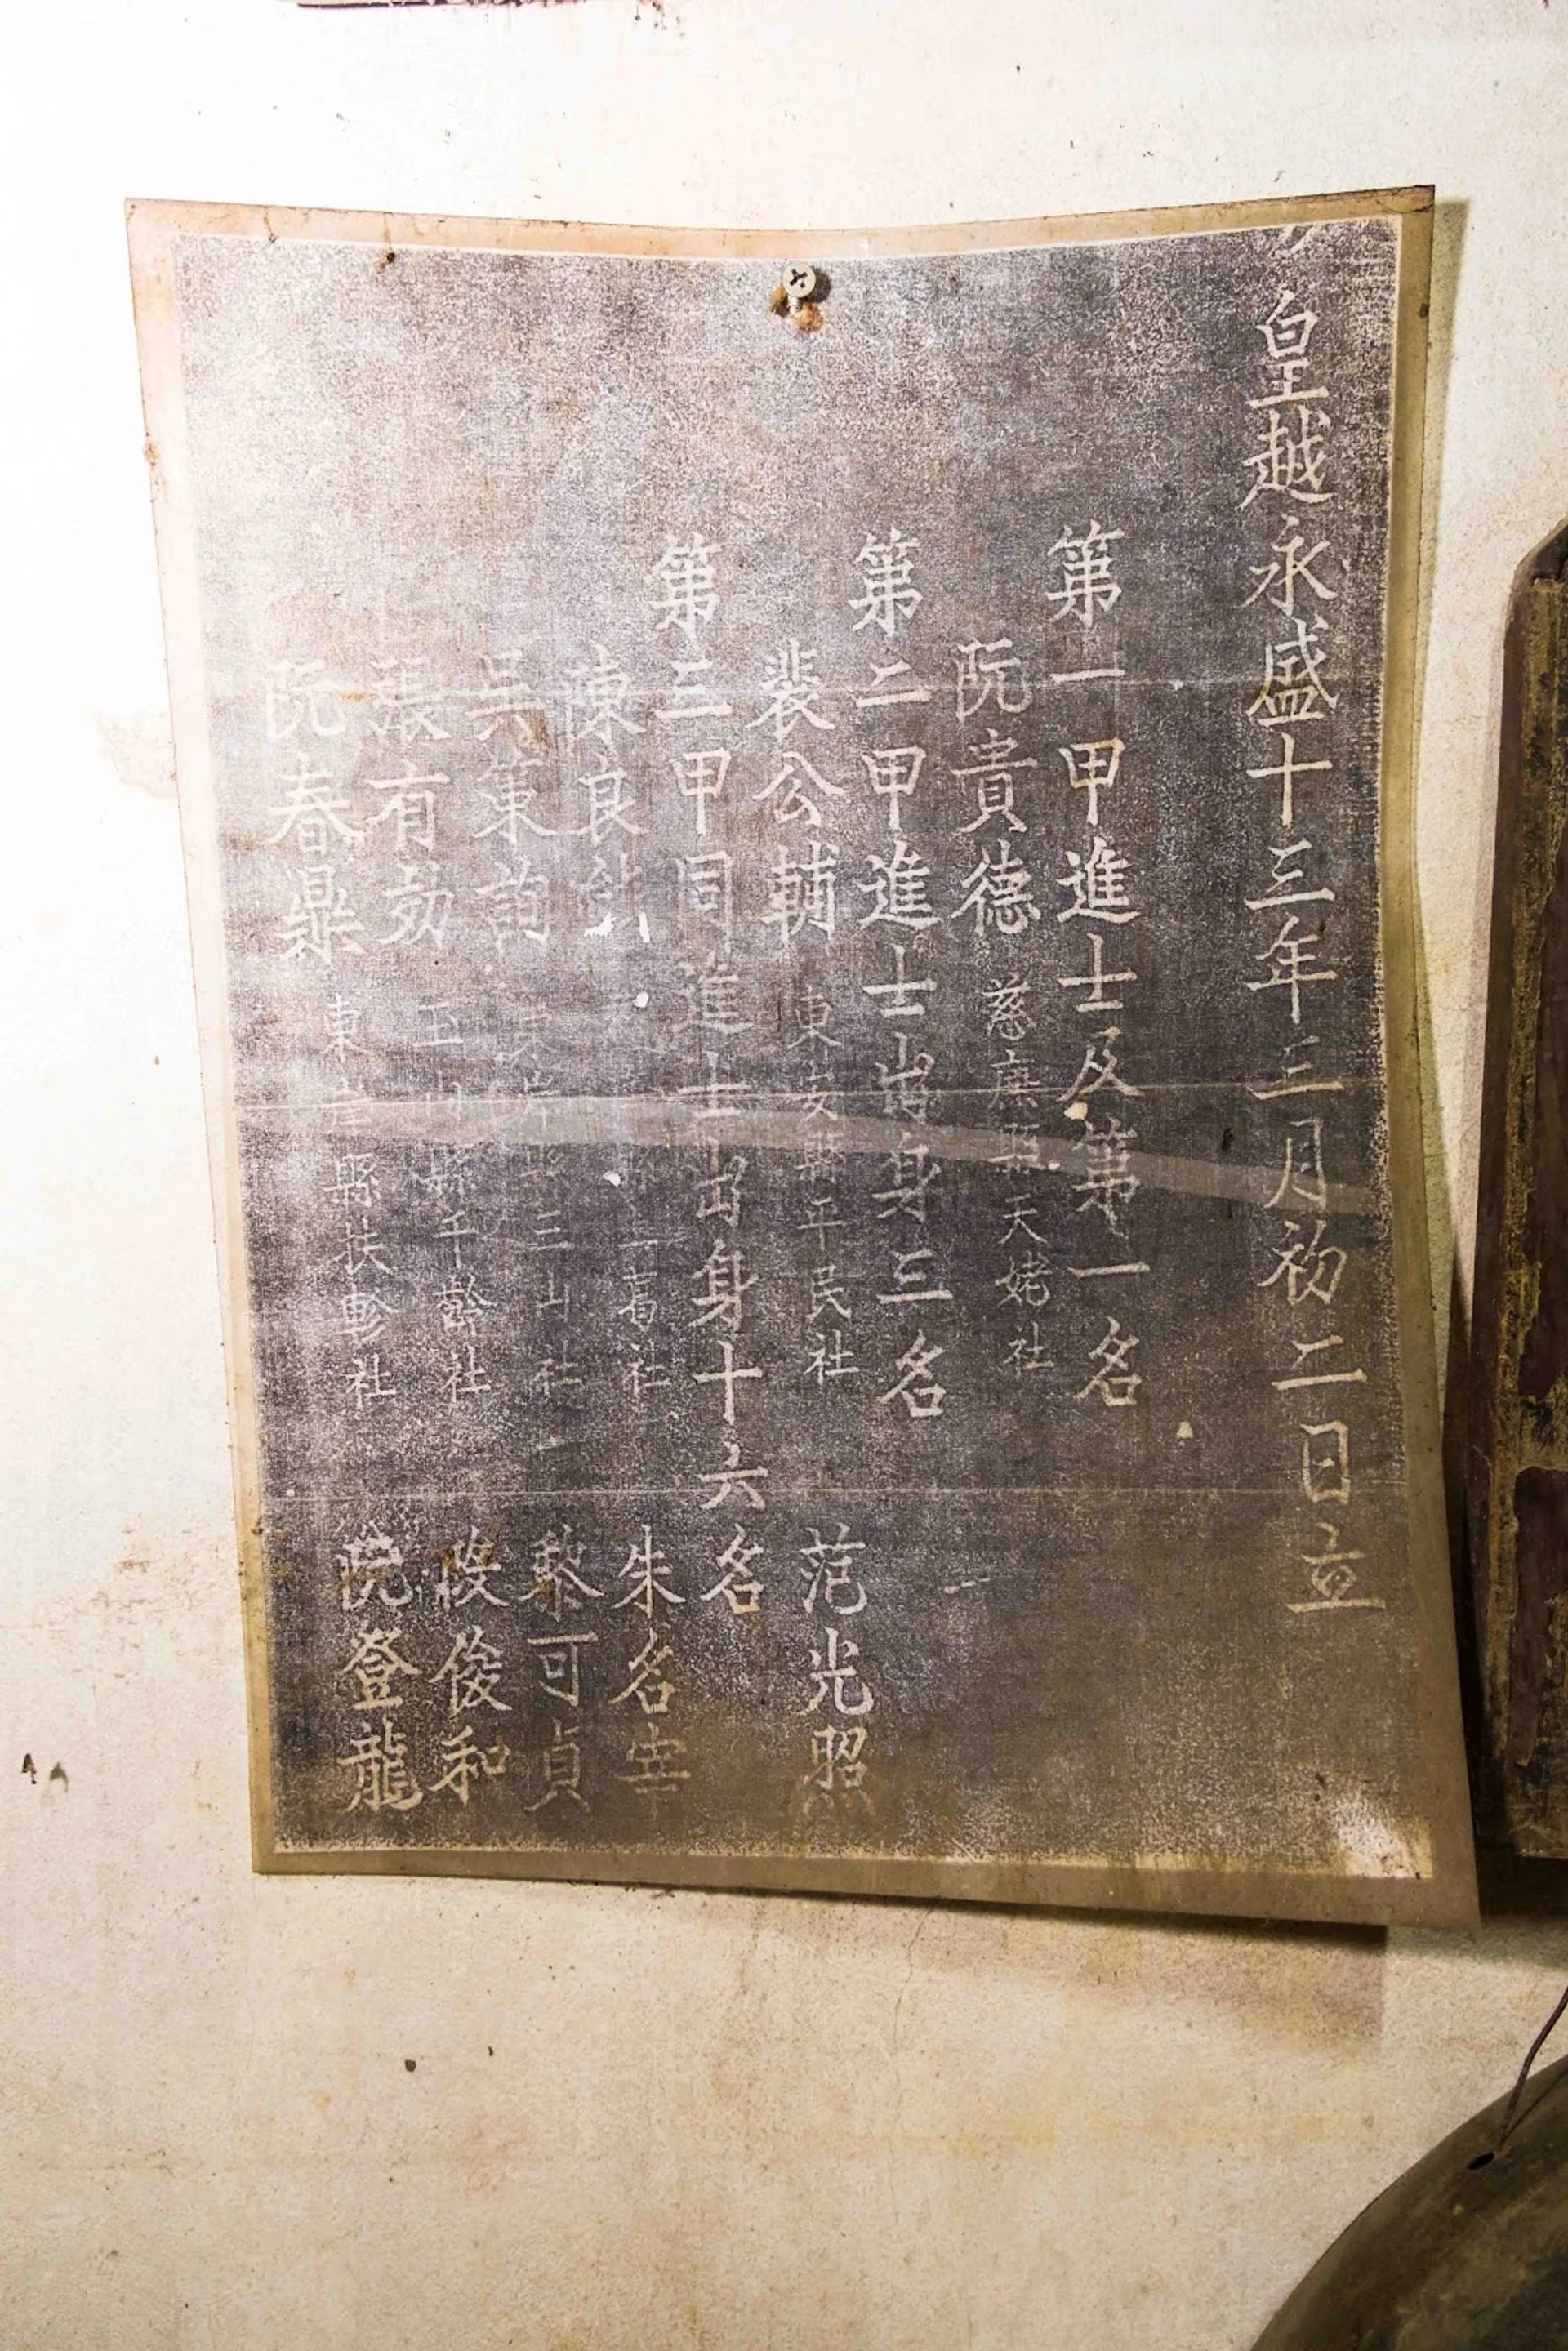 皇越永盛十三年三月初二日立
第一甲進士及第一名
阮貴德 慈廉縣天姥社
第二甲進士出身三名
裴公輔 東安縣平民社 范光照
第三甲同進士出身十六名
陳良 社 朱名宰
吳策詢 三山社 黎可貞
張有効 縣千齡社 段俊和
阮春鼎 東岸縣扶軫社 阮登龍